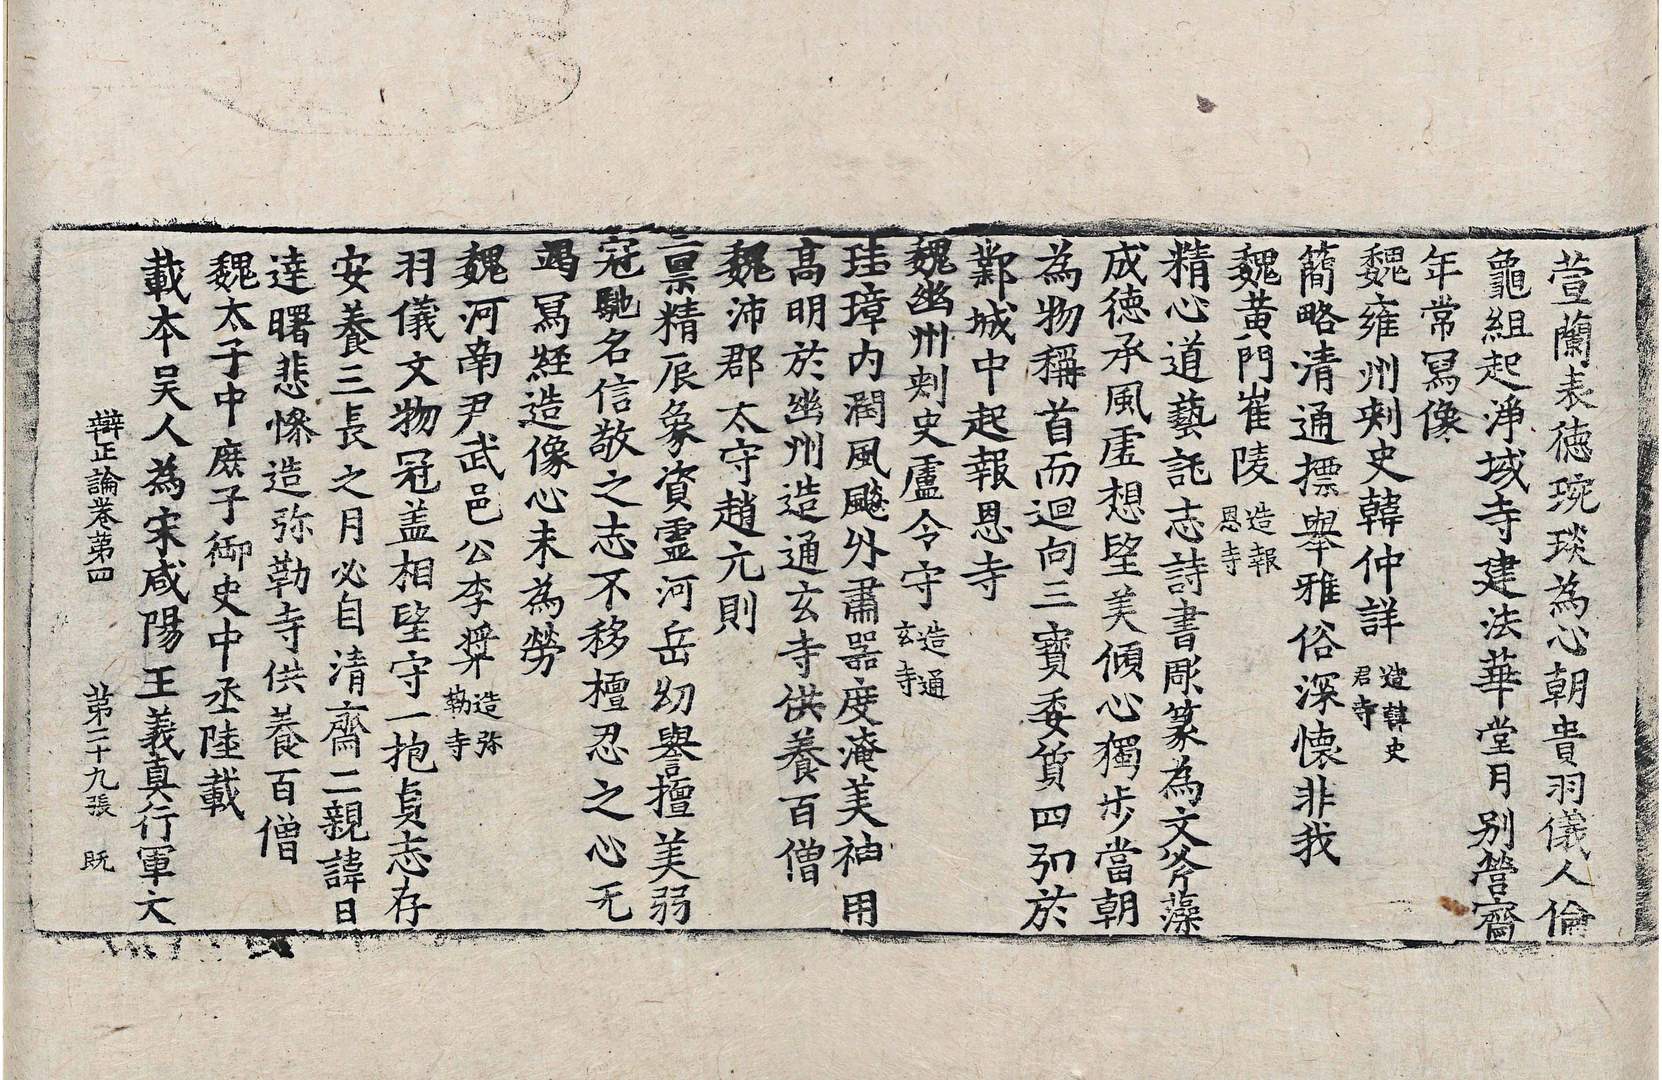 萱蘭表德琬琰為心朝貴羽儀人倫
龜組起淨域寺建法華堂月別營齋
年常冩像
魏雍州刺史韓仲詳造韓史君寺
簡略清通摽舉雅俗深懷非我
魏黃門崔陵造報恩寺
精心道藝託志詩書彫篆為文斧藻
成德承風虛想望美傾心獨步當朝
為物稱首而迴向三寶委質四弘於
鄴城中起報恩寺
魏幽州刺史盧令守造通玄寺
珪璋內潤風飈外肅器度淹美神用
高明於幽州造通玄寺供養百僧
魏沛郡太守趙元則
三景精辰象資靈河岳幼譽擅美弱
冠馳名信敬之志不移檀忍之心无
竭冩經造像心未為勞
魏河南尹武邑公李獎造弥勒寺
羽儀文物冠盖相望守一抱貞志存
安養三長之月必自清齋二親諱日
達曙悲慘造弥勒寺供養百僧
魏太子中庶子御史中丞陸載
載本吴人為宋咸陽王義真行軍大
辯正論卷第四　第二十九張　既